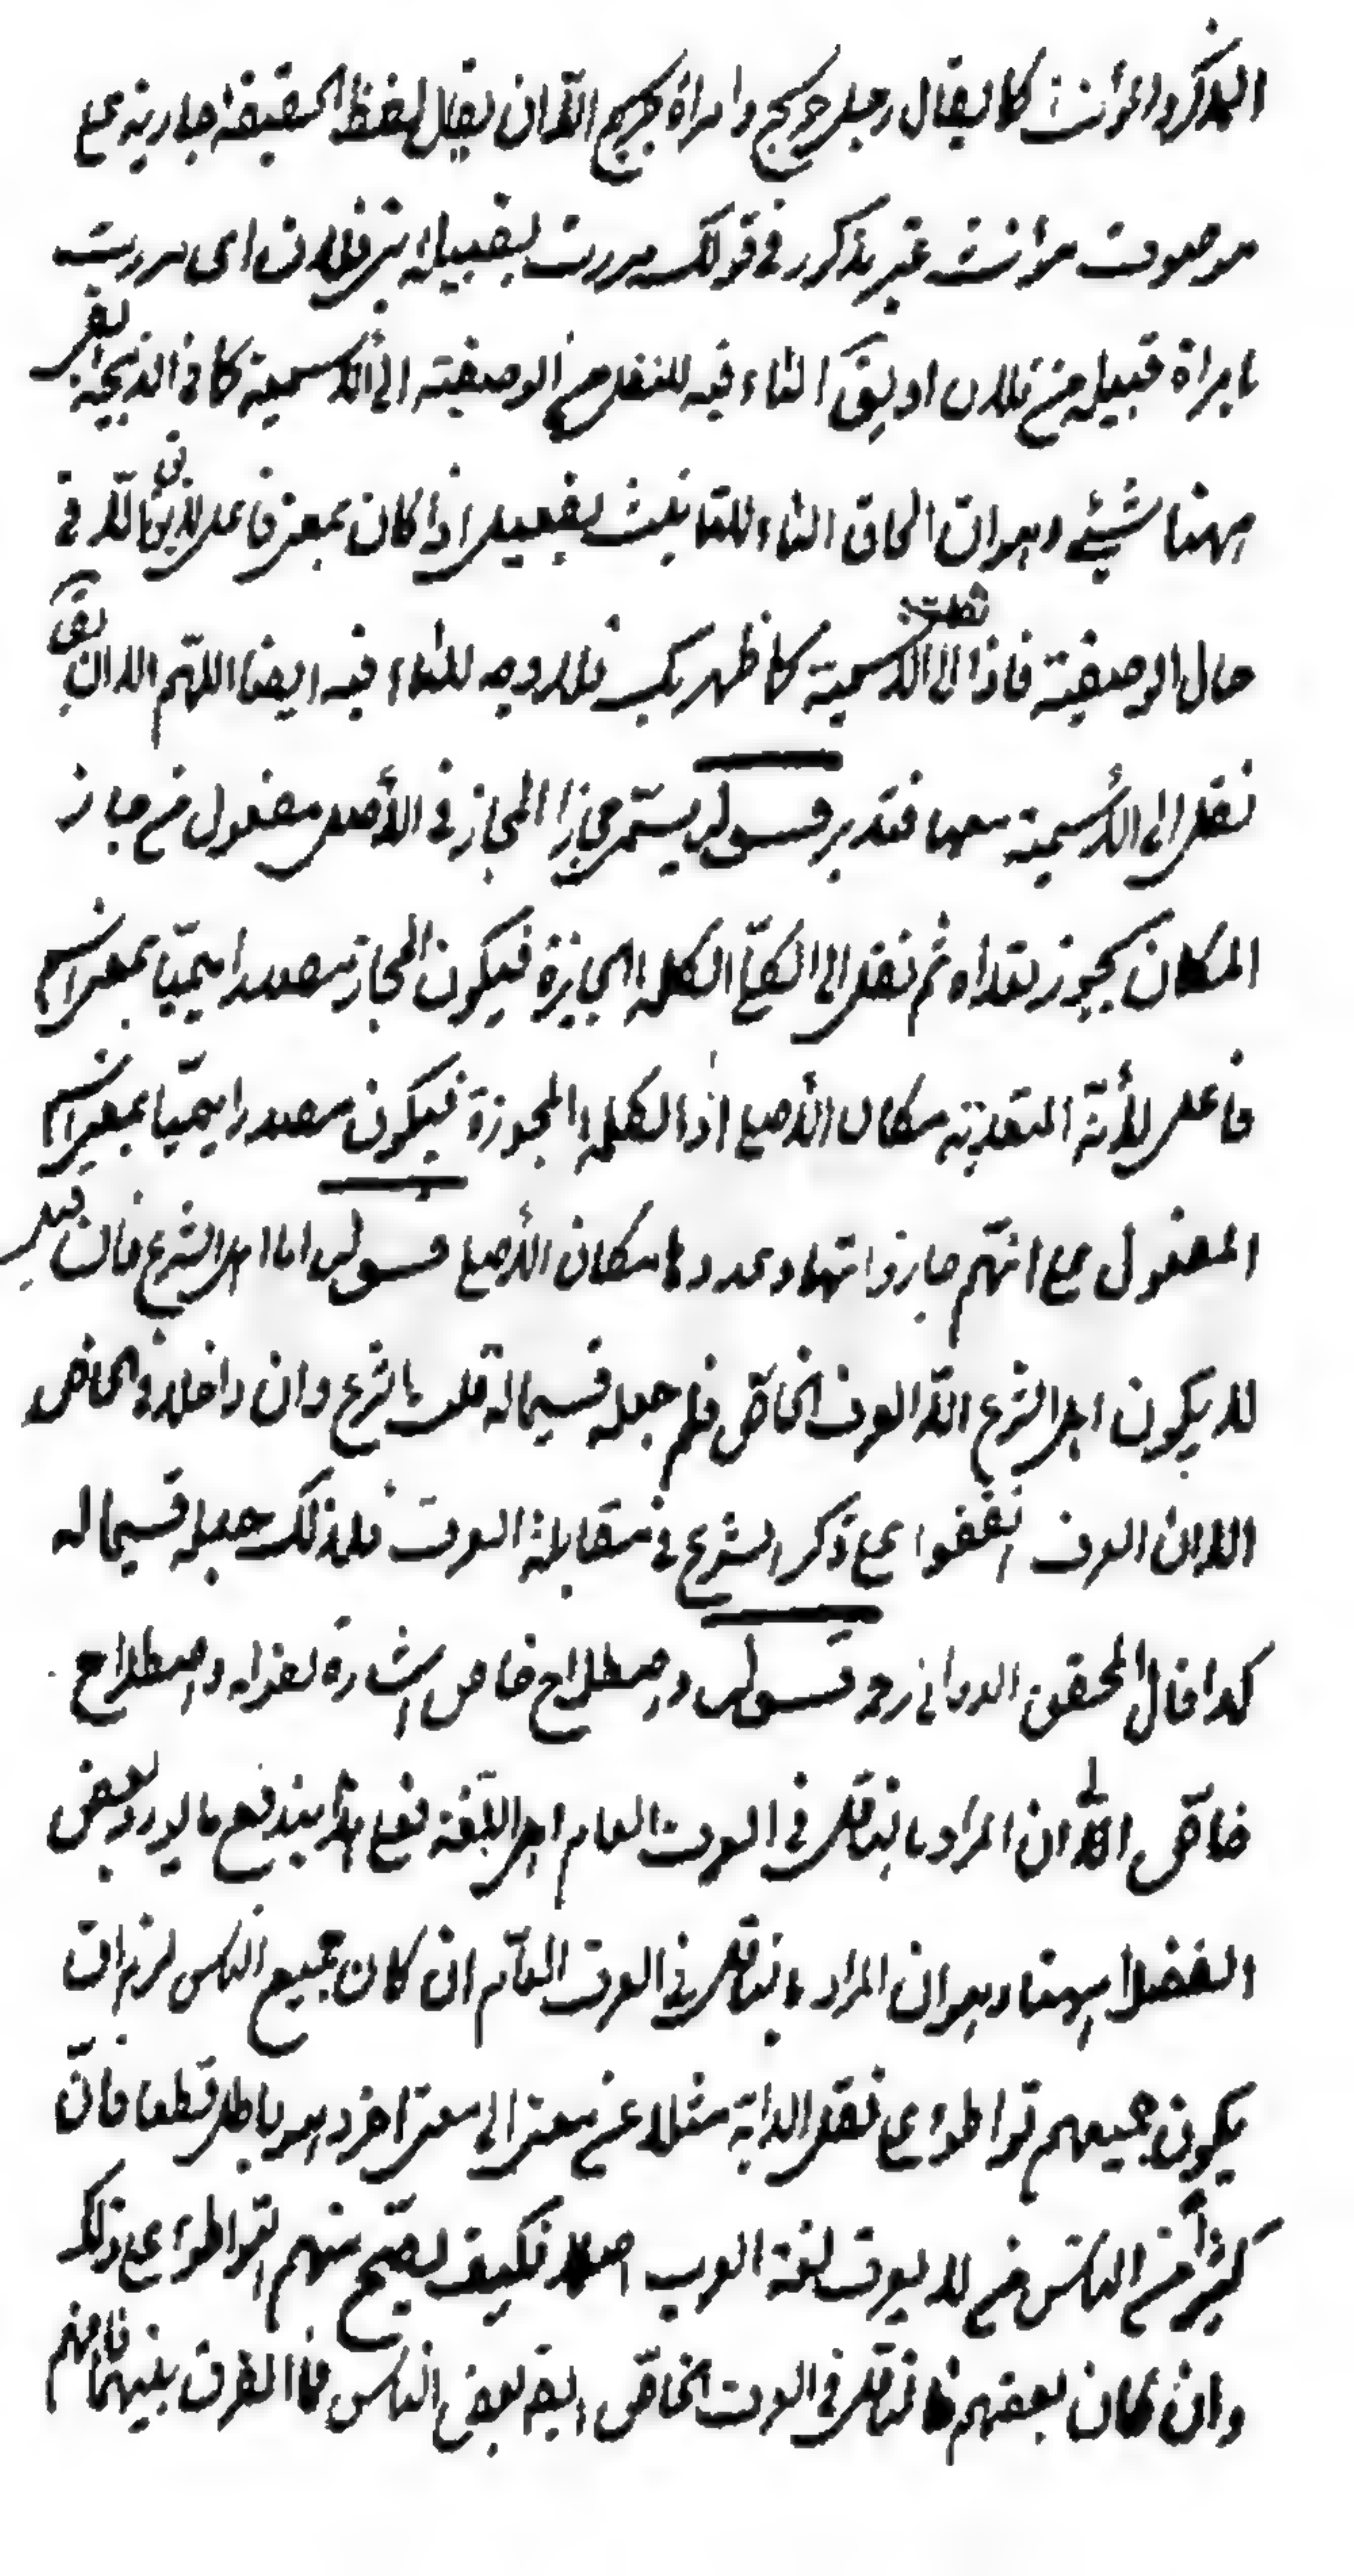 المذكر والمؤنث كما يقال رجل جريح وامراة جريح الا ان يقال لفظ الحقيقة جارية على
موصوف مؤنث غير مذكور في قولك مررت بقبيلة بني فلان اى مررت
بامراة قبيلة بني فلان او يق التاء فيه للنقل من الوصفية الى الاسمية كما في الذبيحة بقى
ههنا شيئ وهو ان الحاق التاء للتانيث بفعيل اذا كان بمعنى فاعل انما في
حال الوصفية فاذا نقلت الى الاسمية كما ظهر لك فلا وجه للتاء فيه ايضا اللهم الا ان يق
نقل الى الاسمية معها فتدبر قسوله يسمى مجازا المجاز في الأصل مفعول من جاز
المكان يجوز تعداه ثم نقل الى الكلمة الجايزة فيكون المجاز مصدرا ميميا بمعنى اسم
فاعل لأنة المتعدية مكان الأصلى اذ الكلمة المجوزة فيكون مصدرا ميميا بمعنى اسم
المفعول على انهم جازوا بها وعدوها مكان الأصلى قسوله اما اهل الشرع فان قيل
لا يكون اهل الشرع الا العرف الخاص فلم جعله قسيما له قلت الشرع وان داخلا في الخاص
الا ان العرف اتفقوا على ذكر الشرع في مقابلة العرف فلذلك جعله قسيما له
كذا قال المحقق الدواني رحه قسوله واصطلاح خاص اشارة لقوله واصطلاح
خاص الى ان المراد بالناقل في العرف العام اهل اللغة فعلى هذا يندفع ما يورد بعض
الفضلا ههنا وهو ان المراد بالناقل في العرف العام ان كان جميع الناس لزم ان
يكون جميعهم تواطؤا على نقل الدابة مثلا عن معنى الى معنى اخر وهو باطل قطعا فان
كثيرا من الناس من لا يعرف لغة العرب اصلا فكيف يصح منهم التواطؤ على ذلك
وان كان بعضهم فالناقل في العرف الخاص ايضه بعض الناس فما الفرق بينهما فافهم